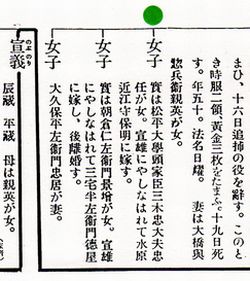 まひ、十六日追捕の役を辭す。このと
き時服二領、黃金三枚をたまふ。十九日死
す。年五十。法名日耀。　妻は大橋與
惣兵衛親英が女。
女子
實は松平大學頭家臣三木忠大夫忠
任が女。宣雄にやしなはれて水原
近江守保明に嫁す。
女子
實は朝倉仁左衛門景增が女。宣雄
にやしなはれて三宅半左衛門德屋
に嫁し、後離婚す。
女子
大久保平左衛門忠居が妻。
宣義
のぶのり
辰藏　平藏　母は親英が女。